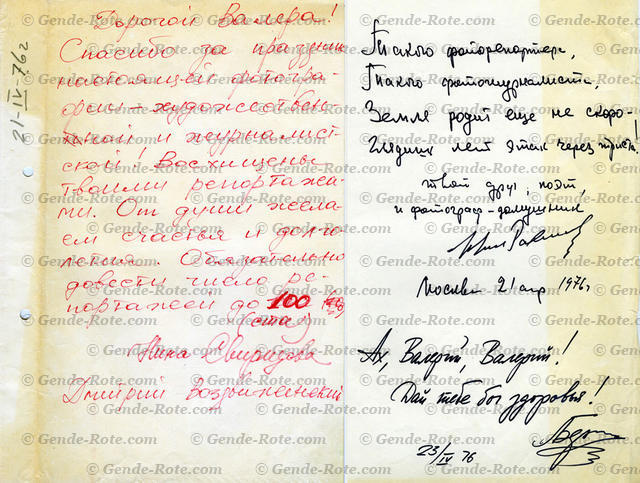 21-IV-76г
Дорогой Валера!
Спасибо за праздник
настоящей фотогра-
фии - художествен-
ной и журналист-
ской! Восхищены
твоими репортажа-
ми. От души жела-
ем счастья и долго-
летия. Обязательно
довести число ре-
портажей до 100
(ста)
Нина Свиридова
Дмитрий Воздвиженский
Такого фоторепортера,
Такого фотожурналиста,
Земля родит еще не скоро -
Глядишь лет этак через триста!
твой друг, поэт,
и фотограф-домушник
Москва 21 апр 1976г
Ах, Валерий, Валерий!
Дай тебе бог здоровья!
23/IV 76
© Gende-Rote.com